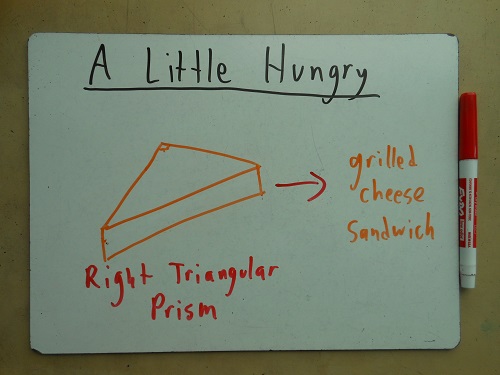 A Little Hungry
grilled
cheese
sandwich
Right Triangular
Prism
EXPO